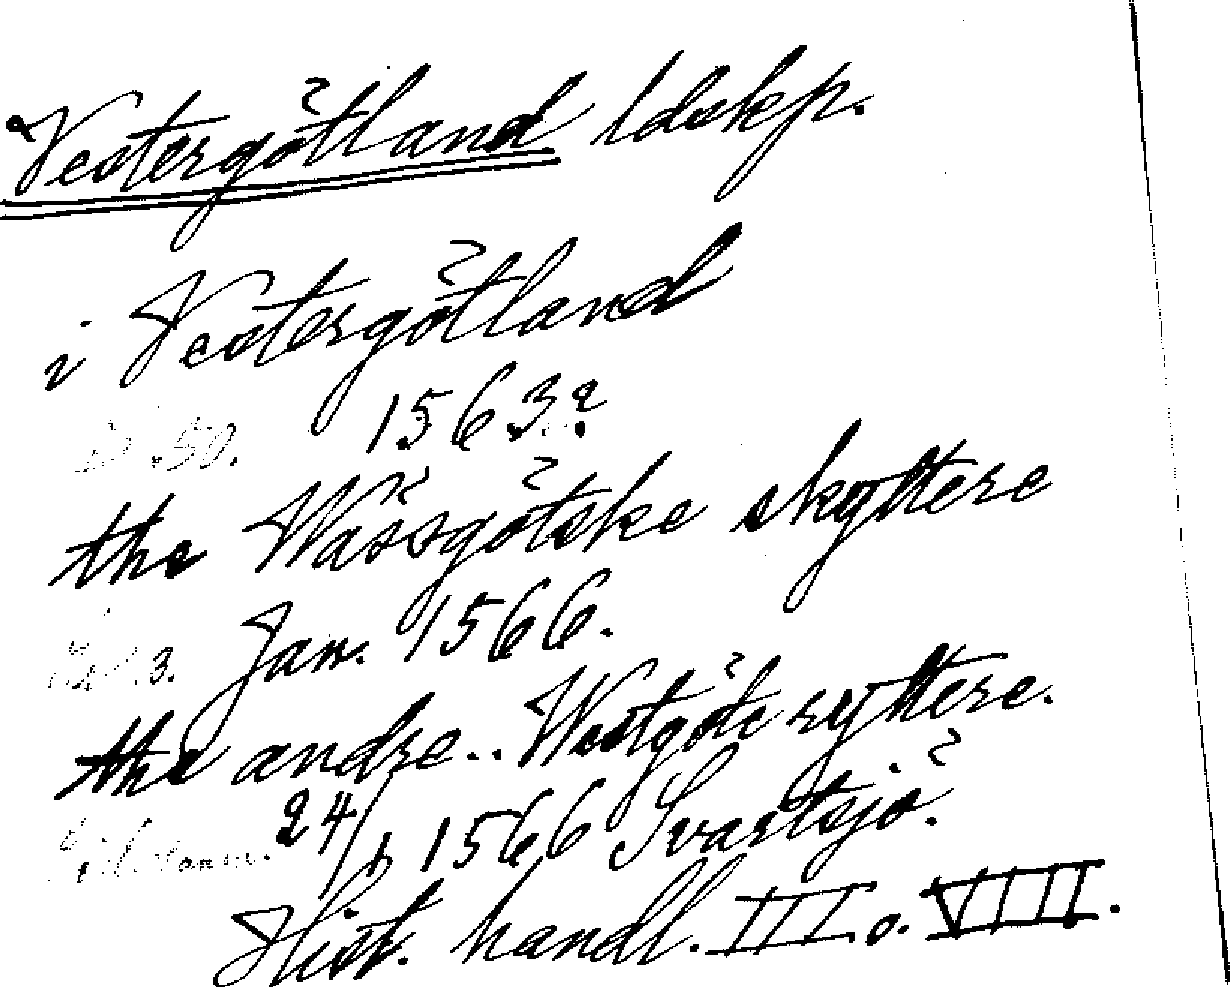 Vestergötland ldskp.
i Vestergötland
s. 50. 1563?
the Wässgötske skyttere
3. Jan. 1566.
the andre.. Westgöte ryttere.
24/1 1566 Svartsjö.
Hist. handl. III o. VIII.